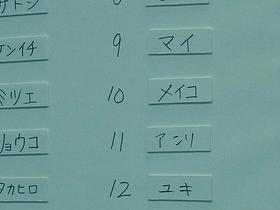 サトシ
ケンイチ 9 マイ
ミツエ 10 メイコ
ョウコ 11 アンリ
タカヒロ 12 ユキ